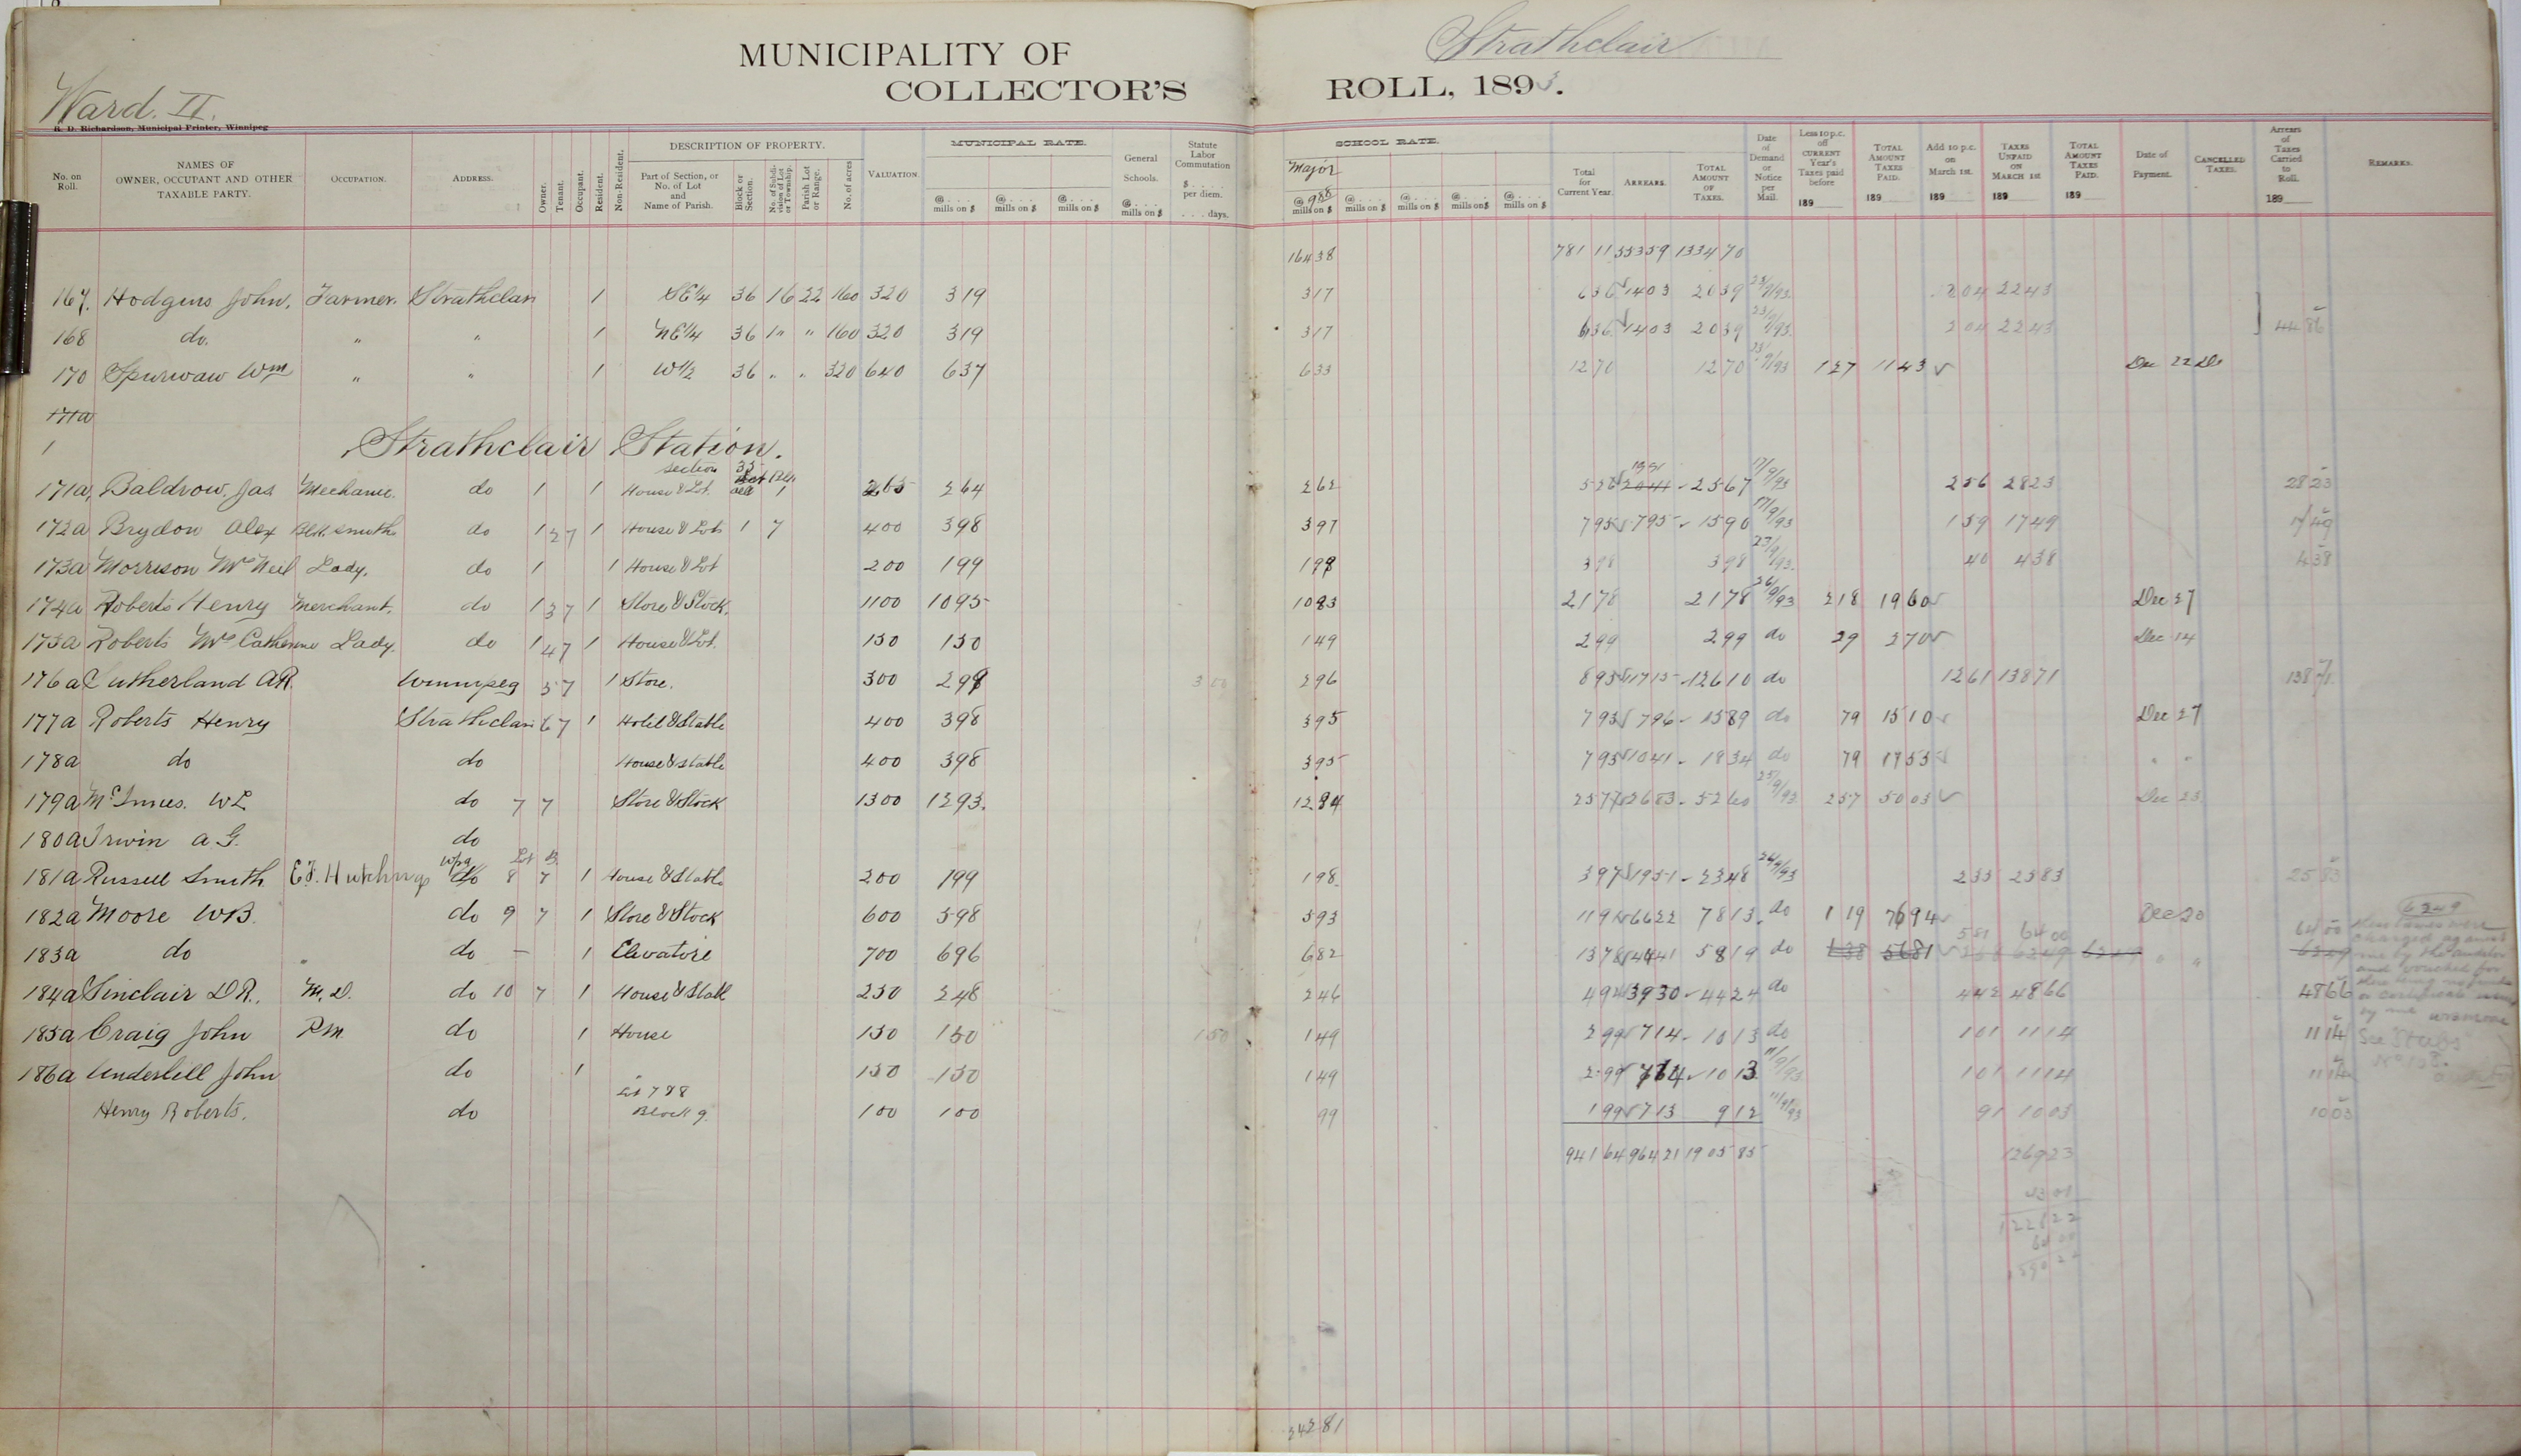 MUNICIPALITY OF Strathclair
COLLECTOR'S ROLL, 1893.
Ward. II.
R. D. Richardson, Municipal Printer, Winnipeg
No. on Roll. NAMES OF OWNER, OCCUPANT AND OTHER TAXABLE PARTY. OCCUPATION. ADDRESS. Owner. Tenant. Occupant. Resident. Non-Resident. DESCRIPTION OF PROPERTY. Part of Section, or No. of Lot and Name of Parish. Block or Section. No. of Subdivision of Lot or Township. Parish Lot or Range. No. of acres VALUATION. MUNICIPAL RATE. @ . . . mills on $ @ . . . mills on $ @ . . . mills on $ General Schools. @ . . . mills on $ Statute Labor Commutation $ . . . . per diem. . . . days. SCHOOL RATE. Major @ 988 mills on $ @ . . . mills on $ @ . . . mills on $ @ . . . mills on $ @ . . . mills on $ Total for Current Year. ARREARS. TOTAL AMOUNT OF TAXES. Date of Demand or Notice per Mail. Less 10 p.c. off CURRENT Year's Taxes paid before 189 TOTAL AMOUNT TAXES PAID. 189 Add 10 p.c. on March 1st. 189 TAXES UNPAID ON MARCH 1st 189 TOTAL AMOUNT TAXES PAID. 189 Date of Payment. CANCELLED TAXES. Arrears of Taxes Carried to Roll. 189 REMARKS.
164 38 781 11 553 59 1334 70
167. Hodgins John. Farmer. Strathclair 1 SE 1/4 36 16 22 160 320 3 19 3 17 6 36 14 03 20 39 23/9/93. 2 04 22 43
168 do. " " 1 NE 1/4 36 1" " 160 320 3 19 3 17 6 36 14 03 20 39 23/9/93. 2 04 22 43 44 86
170 Spurwaw Wm " " 1 W 1/2 36 " " 320 640 6 37 6 33 12 70 12 70 23/9/93 1 27 11 43 Dec 22
171a
1 Strathclair Station.
section 35
171a, Baldrow, Jas Mechanic. do 1 1 House & Lot. 1 265 2 64 2 62 5 26 20 41 25 67 17/9/93 2 56 28 23 28 23
172a Brydon Alex Blk. smith do 1 2 7 1 House & Lot 1 7 400 3 98 3 97 7 95 7 95 15 90 17/9/93 1 59 17 49 17 49
173a Morrison Mrs Neil Lady. do 1 1 House & Lot 200 1 99 1 99 3 98 3 98 23/9/93. 40 4 38 4 38
174a Roberts Henry Merchant. do 1 3 7 1 Store & Stock. 1100 10 95 10 83 21 78 21 78 26/9/93 2 18 19 60 Dec 27
175a Roberts Mrs Catherine Lady. do 1 4 7 1 House & Lot. 150 1 50 1 49 2 99 2 99 do 29 2 70 Dec 14
176a Sutherland A.R. Winnipeg 5 7 1 Store. 300 2 98 3 00 2 96 8 95 117 15 126 10 do 12 61 138 71 138 71
177a Roberts Henry Strathclair 6 7 1 Hotel & Stable 400 3 98 3 95 7 93 7 96 15 89 do 79 15 10 Dec 27
178a do do House & stable 400 3 98 3 95 7 93 10 41 18 34 do 79 17 55 " "
179a McInnes. W L do 7 7 Store & Stock 1300 12 93. 12 84 25 77 26 83 52 60 25/9/93 2 57 50 03 Dec 23.
180a Irwin A. G. do
Wpg Lot B.
181a Russell Smith E.F. Hutchings do 8 7 1 House & Stable 200 1 99 1 98. 3 97 19 51 23 48 26/9/93 2 35 25 83 25 83
182a Moore W B. do 9 7 1 Store & Stock 600 5 98 5 93 11 91 66 22 78 13. do 1 19 76 94 Dec 20
5 81 64 00 64 00
183a do " do – 1 Elevator 700 6 96 6 82 13 78 44 41 58 19 do 1 38 56 81 62 49
184a Sinclair D R., M. D. do 10 7 1 House & Stabl 250 2 48 2 46 4 94 39 30 44 24 do 4 42 48 66 48 66
185a Craig John P.M. do 1 House 150 1 50 1 50 1 49 2 99 7 14 10 13 do 1 01 11 14 11 14
186a Underhill John do 1 150 1 50 1 49 2 99 7 14 10 13 11/9/93 1 01 11 14 11 14
Lot 7 & 8
Henry Roberts. do Block 9. 100 1 00 99 1 99 7 13 9 12 11/9/93 91 10 03 10 03
941 64 964 21 1905 85 1269 23
342 81
62 49
these taxes were
charged against
me by the auditor
and vouched for
See "Stubs"